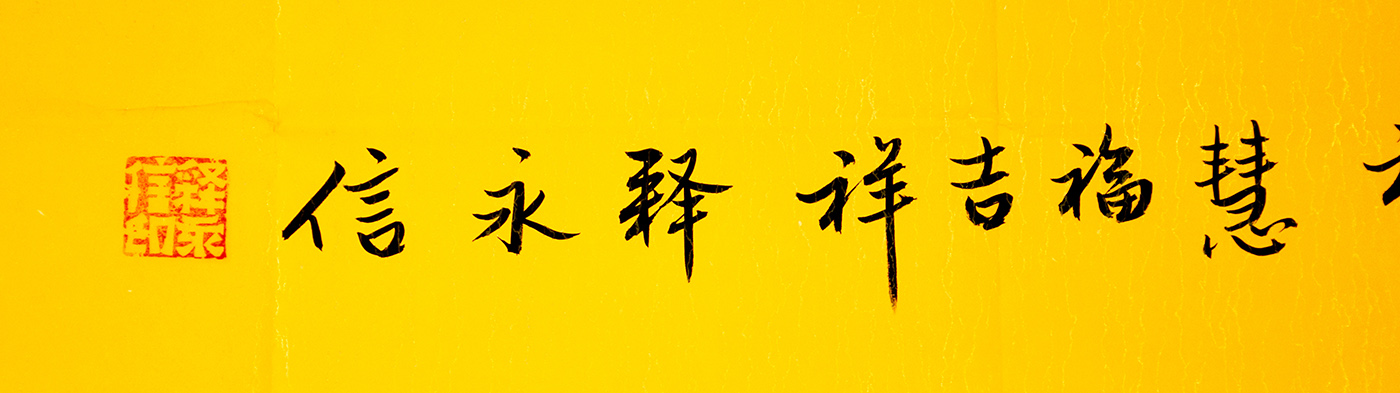 慧福吉祥 释永信
释永信印